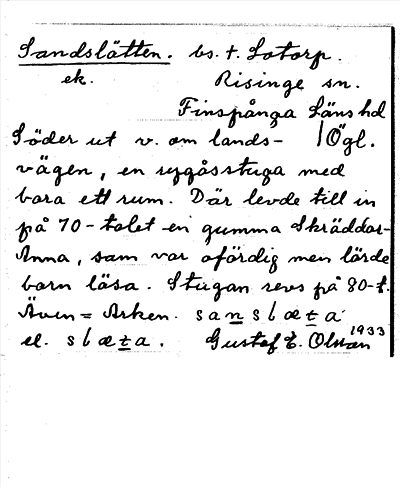 Sandslätten. bs. t. Sotorp.
ek. Risinge sn.
Finspånga Läns hd
Söder ut v. om lands- / Ögl.
vägen, en ryggåsstuga med
bara ett rum. Där levde till in
på 70-talet en gumma Skräddar-
Anna, som var ofördig men lärde
barn läsa. Stugan revs på 80-t.
Även = Arken. s a n s l æ t a
el. s l æ t a. Gustaf E. Olsson 1933